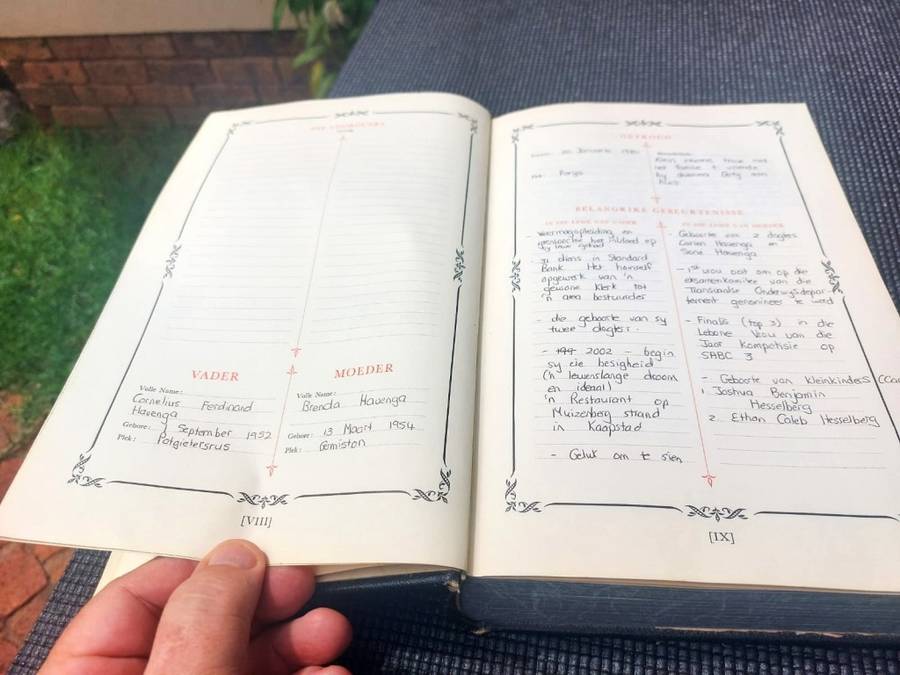 VADER
Volle Name:
Cornelius Ferdinand
Havenga
Gebore: 9 September 1952
Plek: Potgietersrus
MOEDER
Volle Name:
Brenda Havenga
Gebore: 13 Maart 1954
Plek: Germiston
[VIII]
GETROUD
20 Januarie
Parys
BELANGRIKE GEBEURTENISSE
IN DIE LEWE VAN VADER
- Weermagopleiding en
op
- In diens in Standard
Bank. Het homself
opgewerk van 'n
gewone klerk tot
'n area bestuurder
- die geboorte van sy
twee dogters.
- 199 2002 - begin
sy eie besigheid
('n lewenslange droom
en ideaal)
'n Restaurant op
Muizenberg strand
in Kaapstad
- Geluk om te sien
IN DIE LEWE VAN MOEDER
- Geboorte van 2 dogters
Havenga en
Havenga
- 1st vrou ooit om op die
eksamenkomitee van die
Transvaalse Onderwysdepar-
tement genomineer te word
- Finalis (top 3) in die
Lebone Vrou van die
Jaar kompetisie op
SABC 3
- Geboorte van Kleinkinders
1 Joshua Benjamin
Hesselberg
2. Ethan Caleb Hesselberg
[IX]